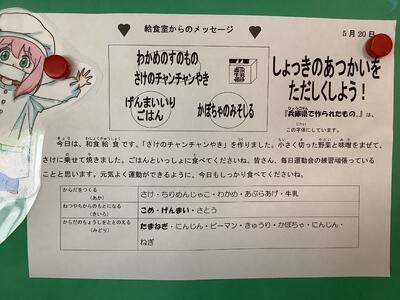 給食室からのメッセージ
5月20日
わかめのすのもの
さけのチャンチャンやき
げんまいいり
ごはん
かぼちゃのみそしる
しょっきのあつかいを
ただしくしよう！
『兵庫県で作られたもの。』は、
この字体にしています。
今日は、和食給食です。「さけのチャンチャンやき」を作りました。小さく切った野菜と味噌をまぜて、
さけに乗せて焼きました。ごはんといっしょに食べてくださいね。皆さん、毎日運動会の練習頑張っている
ことと思います。元気よく運動ができるように、今日もしっかり食べてくださいね。
からだをつくる
（あか）
さけ・ちりめんじゃこ・わかめ・あぶらあげ・牛乳
ねつやちからのもとになる
（きいろ）
こめ・げんまい・さとう
からだのちょうしをととのえる
（みどり）
たまねぎ・にんじん・ピーマン・きゅうり・かぼちゃ・にんじん・
ねぎ